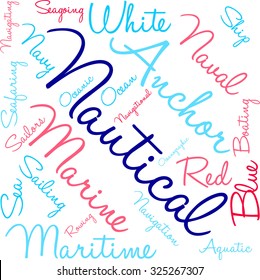 Seagoing
White
Ship
Navigating
Navy
Anchor
Naval
Seafaring
Oceanic
Ocean
Navigational
Nautical
Sailors
Boating
Marine
Red
Blue
Sea
Sailing
Rowing
Navigation
Maritime
Aquatic
shutterstock
IMAGE ID: 325267307
www.shutterstock.com